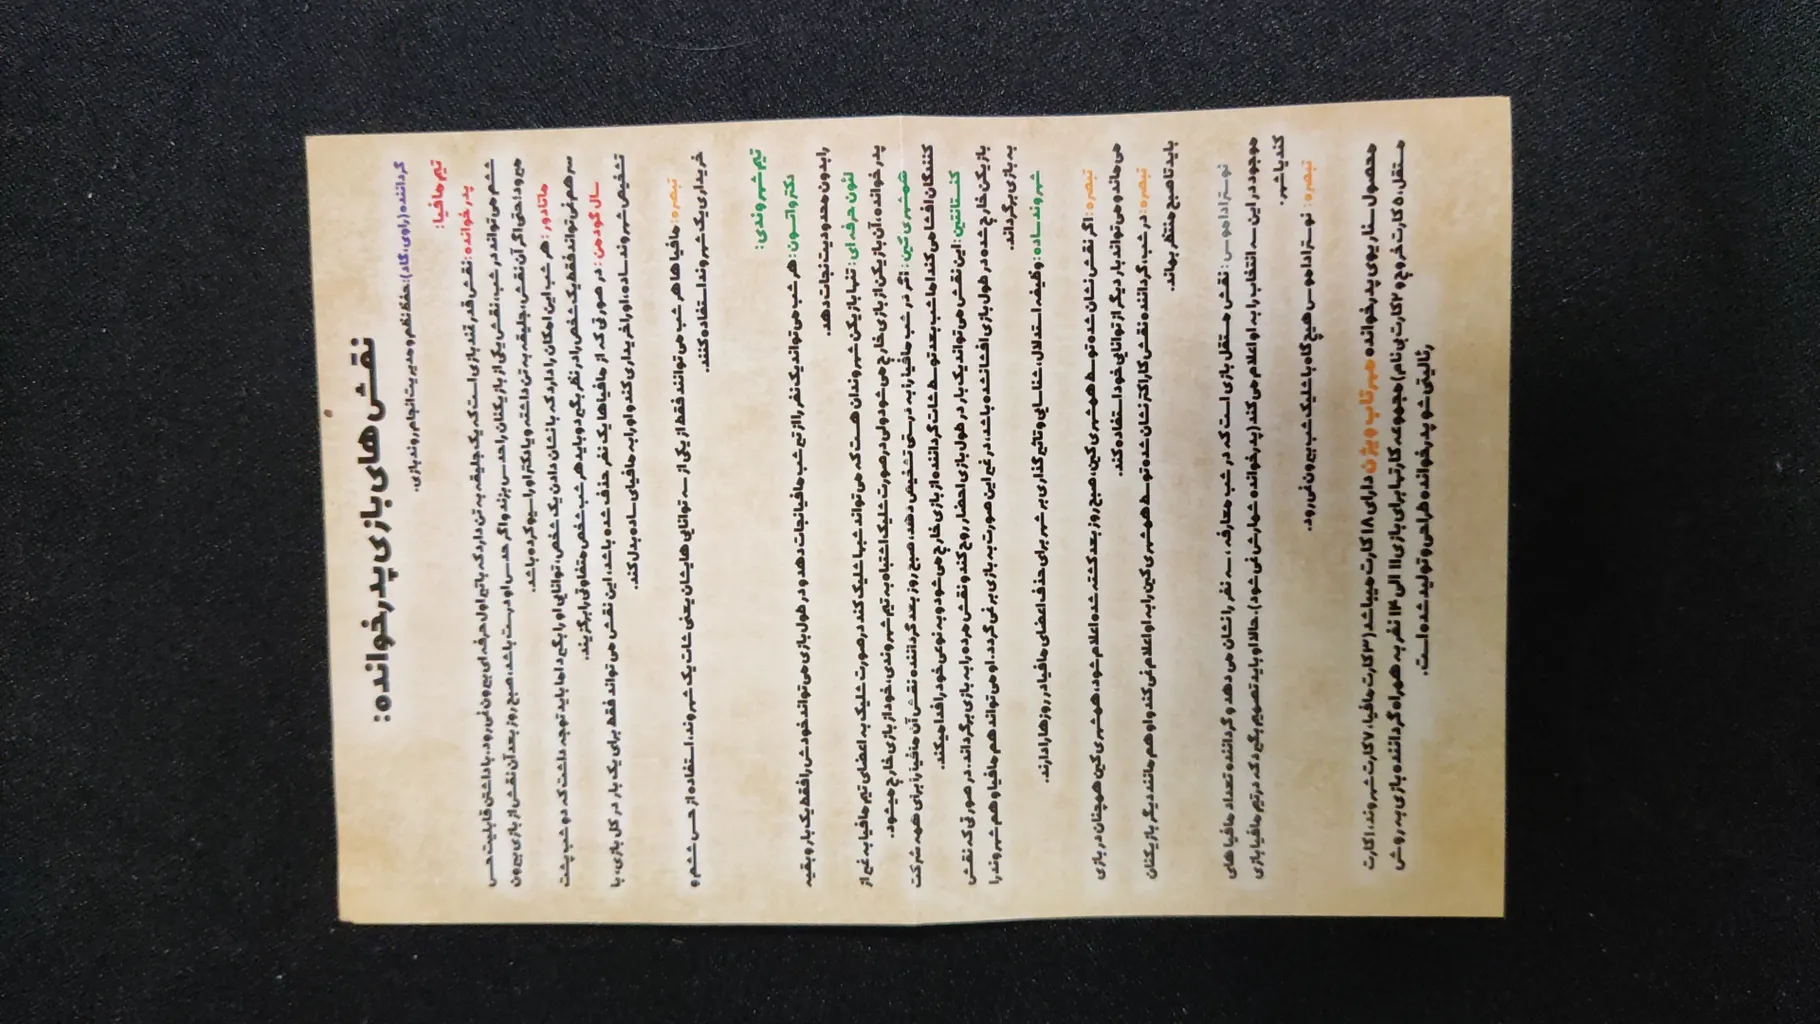 نقش های بازی پدرخوانده:
گرداننده(راوی،گاد):حفظ نظم و مدیریت انجام روند بازی.
تیم مافیا:
پدرخوانده: نقش قدرتمند بازی است که یک جلیقه به تن دارد که با تیر اول حرفه ای بیرون نمی رود. با داشتن قابلیت حس
ششم می تواند در شب، نقش یکی از بازیکنان را حدس بزند و اگر حدس او درست باشد، صبح روز بعد آن نقش از بازی بیرون
میرود(حتی اگر آن نقش، جلیقه به تن داشته و یا دکتر او را سیو کرده باشد.
ماتادور: هر شب این امکان را دارد که با نشان دادن یک شخص، توانایی او را بگیرد اما باید توجه داشت که دو شب پشت
سر هم نمی تواند فقط یک شخص را در نظر بگیرد و باید هر شب شخص متفاوتی را برگزیند.
ساول گودمن: در صورتی که از مافیاها یک نفر حذف شده باشد، این نقش می تواند فقط برای یک بار در کل بازی، با
تشخیص شهروند ساده، او را خریداری کند و او را به مافیای ساده بدل کند.
تبصره: مافیاها هر شب می توانند فقط از یکی از سه توانایی هایشان یعنی شات یک شهروند، استفاده از حس ششم و
خریداری یک شهروند استفاده کنند.
تیم شهروندی:
دکتر واتسون: هر شب می تواند یک نفر را از تیر شب مافیا نجات دهد و در طول بازی می تواند خودش را فقط یک بار و بقیه
را بدون محدودیت نجات دهد.
لئون حرفه ای: تنها بازیکن شهروندان هست که می تواند شبها شلیک کند در صورت شلیک به اعضای تیم مافیا به غیر از
پدرخوانده، آن بازیکن از بازی خارج می شود ولی در صورت شلیک اشتباه به تیم شهروندی، خود از بازی خارج میشود.
همشهری کین: اگر در شب مافیا را به درستی تشخیص دهد، صبح روز بعد گرداننده نقش آن مافیا را برای همه شرکت
کنندگان افشا می کند اما شب بعد توسط شات گرداننده از بازی خارج می شود و به نوعی خود را فدا میکند.
کنستانتین: این نقش می تواند یک بار در طول بازی احضار روح کند و نقش مرده را به بازی برگرداند. در صورتی که نقش
بازیکن خارج شده در طول بازی افشا نشده باشد، در غیر این صورت به بازی بر نمی گردد. او می تواند هم مافیا و هم شهروند را
به بازی برگرداند.
شهروند ساده: وظیفه استدلال، شناسایی و تاثیر گذاری بر شهر برای حذف اعضای مافیا در روزها را دارند.
تبصره: اگر نقش نشان شده توسط همشهری کین، صبح روز بعد کشته شده اعلام شود، همشهری کین همچنان در بازی
می ماند و می تواند بار دیگر از توانایی خود استفاده کند.
تبصره: در شب، گرداننده نقش کاراکتر نشان شده توسط همشهری کین را به او اعلام نمی کند و او هم مانند دیگر بازیکنان
باید تا صبح منتظر بماند.
نوستراداموس: نقش مستقل بازی است که در شب معارفه، سه نفر را نشان می دهد و گرداننده تعداد مافیا های
موجود در این سه انتخاب را به او اعلام می کند(پدرخوانده شمارش نمی شود). حالا او باید تصمیم بگیرد که در تیم مافیا بازی
کند یا شهر.
تبصره: نوستراداموس هیچ گاه با شلیک شب بیرون نمی رود.
محصول سناریوی پدرخوانده مهرتاب ویژن دارای ۱۸ کارت میباشد (۳ کارت مافیا، ۷ کارت شهروند، ۱ کارت
مستقل، ۵ کارت خروج و ۲ کارت بی نام) مجموعه کارتها برای بازی ۱۱ الی ۱۳ نفر به همراه گرداننده بازی به روش
رئالیتی شو پدرخوانده طراحی و تولید شده است.